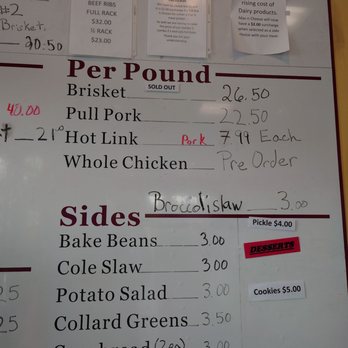 #2
Brisket.
20.50
BEEF RIBS
FULL RACK
$32.00
½ RACK
$23.00
rising cost of
Dairy products
Mac n Cheese will now
have a $3.00 surcharge
when selected as a side
choice with your meal
Per Pound
Brisket SOLD OUT 26.50
40.00 Pull Pork 22.50
21⁰ Hot Link Pork 7.99 Each
Whole Chicken Pre Order
Broccolislaw 3.00
Sides Pickle $4.00
Bake Beans 3.00 DESSERTS
Cole Slaw 3.00
25 Potato Salad 3.00 Cookies $5.00
25 Collard Greens 3.50
3.00